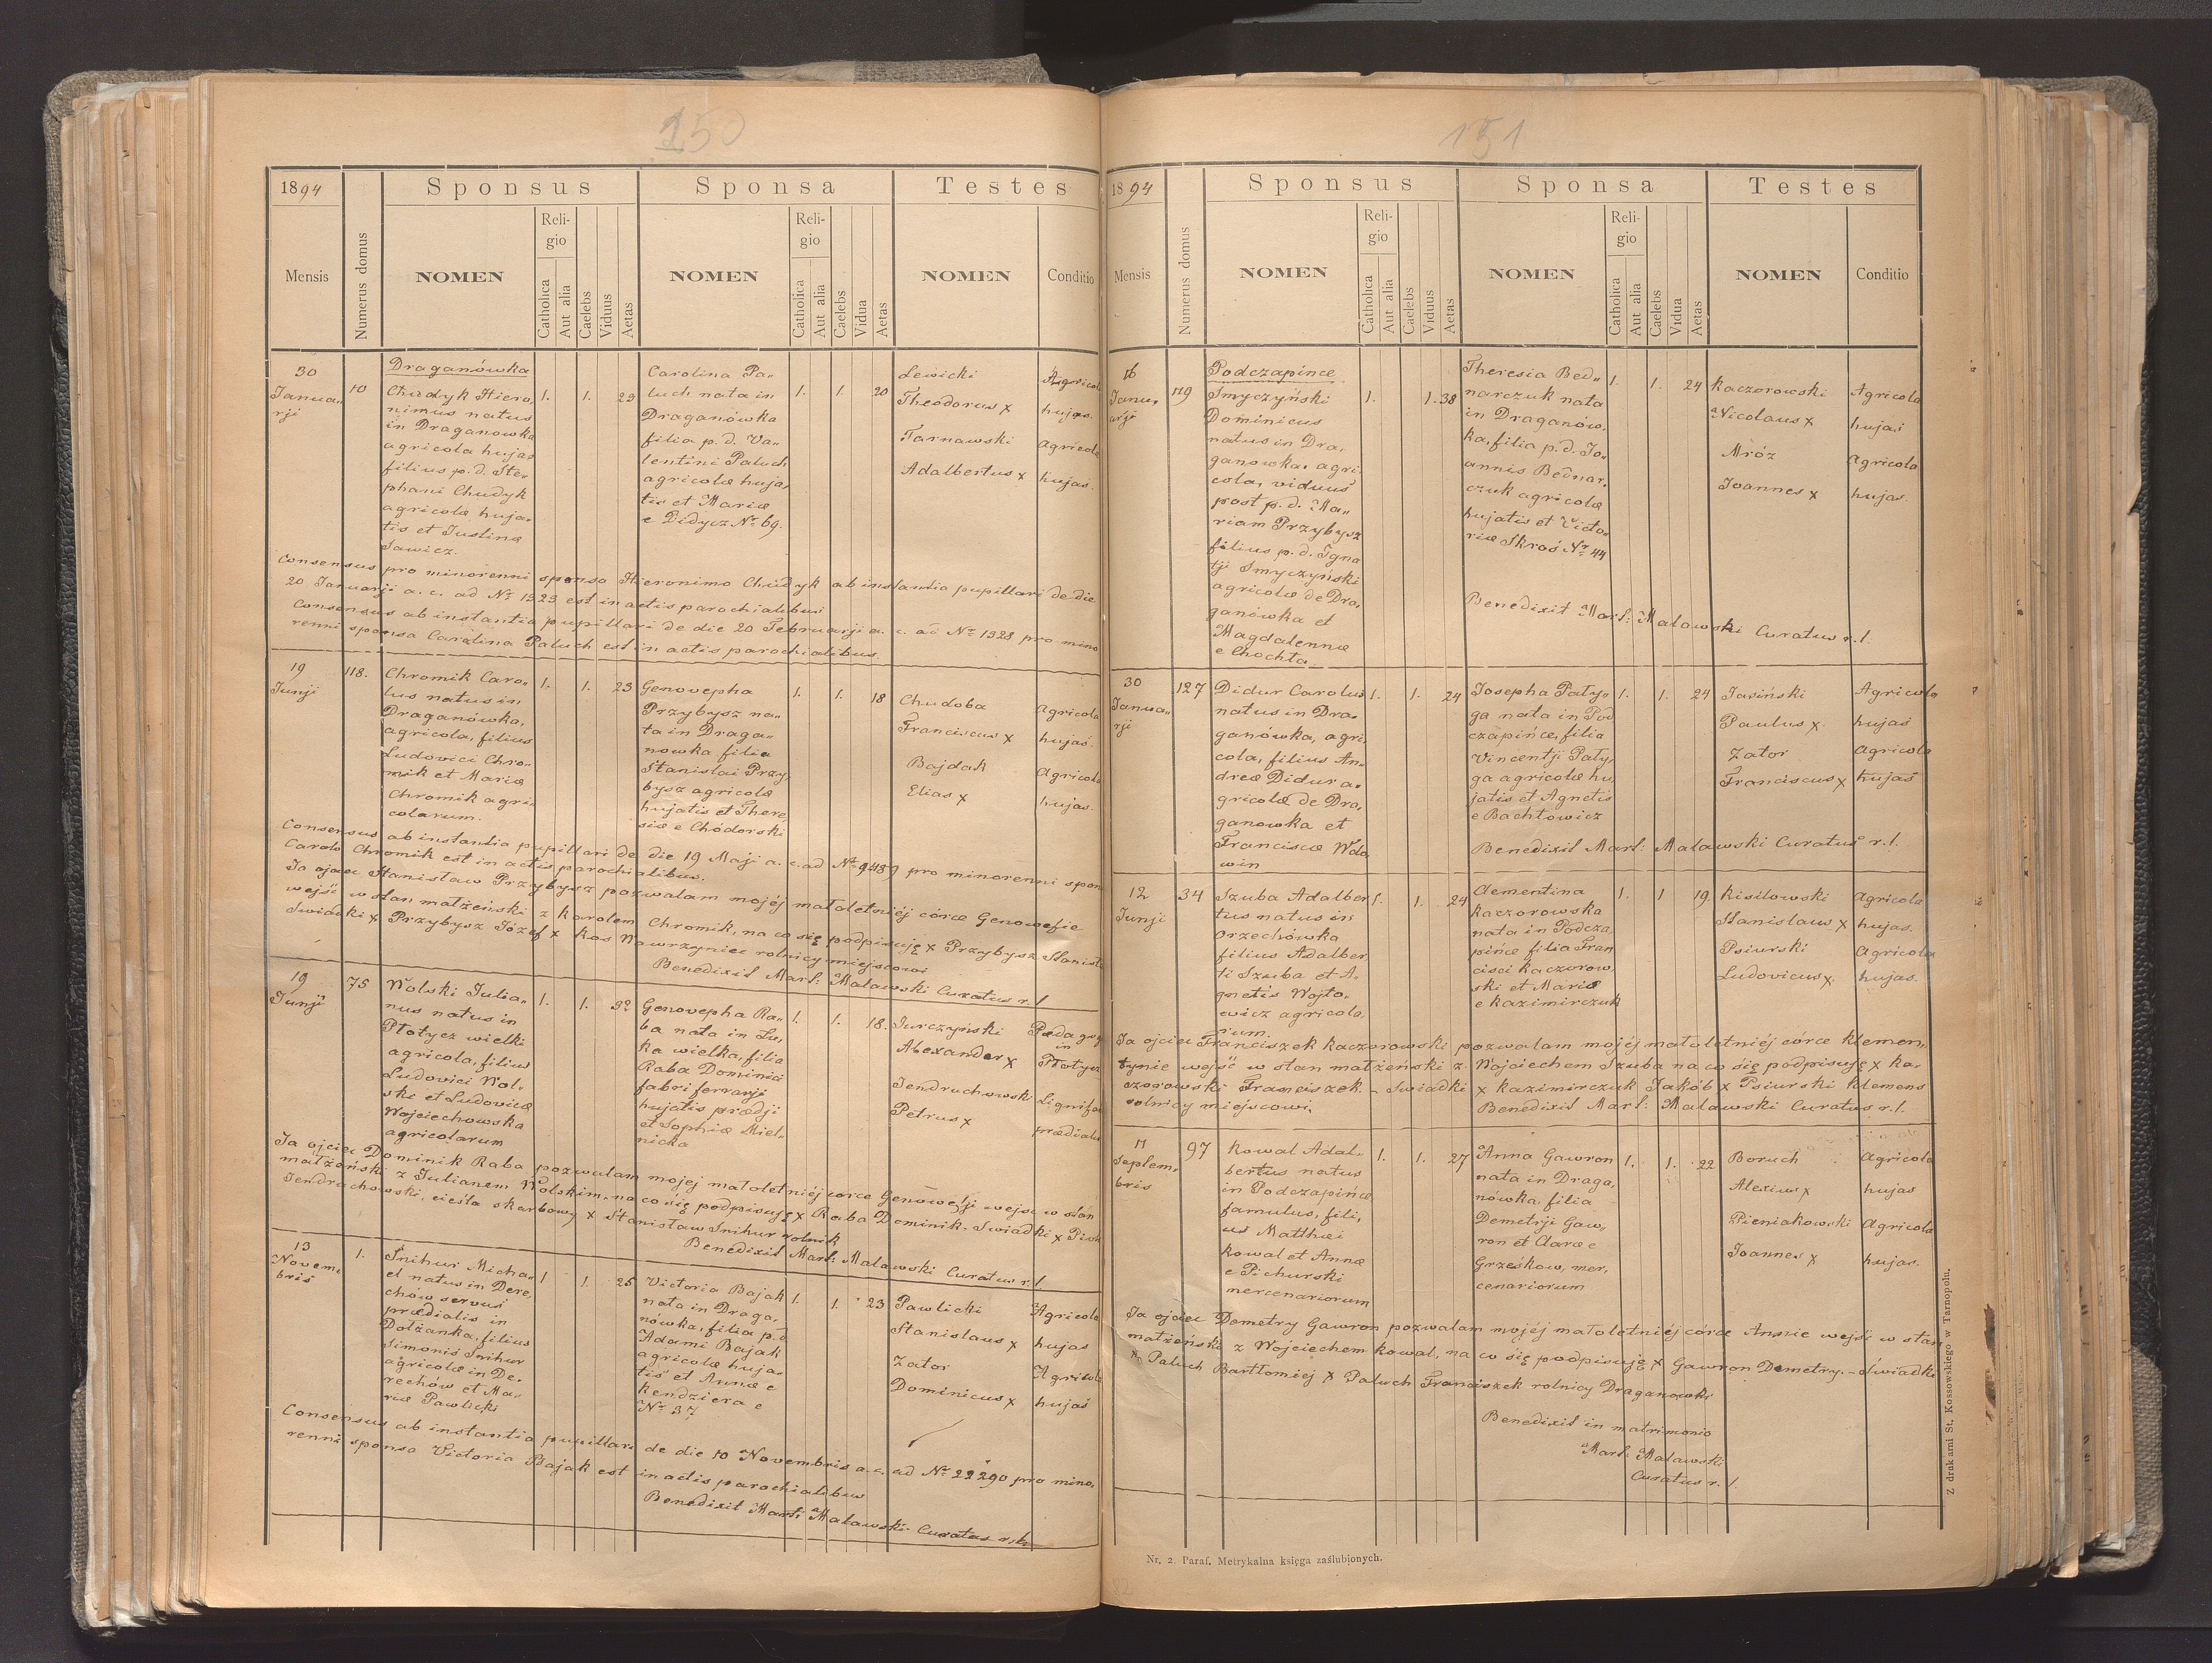 150
1894
Sponsus
Sponsa
Testes
Mensis
Numerus domus
NOMEN
Religio
Catholica
Aut alia
Caelebs
Viduus
Aetas
NOMEN
Religio
Catholica
Aut alia
Caelebs
Vidua
Aetas
NOMEN
Conditio
30
Januarji
10
Draganówka
Chudyk Hiero,
nimus natus
in Draganowka
agricola hujas
filius p. d. Ste-
phani Chudyk
agricolæ huja-
tis et Justinæ
Sawicz.
1.
1.
23
Carolina Pa-
luch nata in
Draganówka
filia p. d. Va-
lentini Paluch
agricolæ huja,
tis et Mariæ
e Didycz Nr 69.
1.
1.
20
Lewicki
Theodorus x
Tarnawski
Adalbertus x
Agricola
hujas.
agricola
hujas.
Consensus pro minorenni sponso Hieronimo Chudyk ab instantia pupillari de die
20 Januarji a. c. ad Nr 1323 est in actis parochialibus
Consensus ab instantia pupillari de die 20 Februarji a. c. ad Nr 1323 pro mino
renni sponsa Carolina Paluch est in actis parochialibus.
19
Junji
118.
Chromik Caro-
lus natus in
Draganówka,
agricola, filius
Ludovici Chro-
mik et Mariæ
Chromik agri-
colarum.
1.
1.
23
Genovepha
Przybysz na-
ta in Draga-
nowka filia
Stanislai Przy,
bysz agricolæ
hujatis et There
siæ e Chódorski
1.
1.
18
Chudoba
Franciscus x
Bajdak
Elias x
agricola
hujas.
agricola
hujas.
Consensus ab instantia pupillari de die 19 Maji a. c. ad Nr 9489 pro minorenni spon
Carolo Chromik est in actis parochialibus.
Ja ojciec Stanisław Przybysz pozwalam mojéj małoletniéj córce Genowefie
wejść w stan małżeński z Karolem Chromik, na co się podpisuję x Przybysz Stanisł
Świadki x Przybysz Józef x Kos Wawrzyniec rolnicy miejscowi
Benedixit Mart: Malawski Curatus r. l.
19
Junji
75
Wolski Julia-
nus natus in
Płotycz wielki
agricola, filius
Ludovici Wol-
ski et Ludovicæ
Wojciechowska
agricolarum
1.
1.
32
Genovepha Ra-
ba nata in Łu,
ka wielka, filia
Raba Dominici
fabri ferrarji
hujatis prædji
et Sophiæ Miel-
nicka
1.
1.
18.
Jurczyński
Alexander x
Jendruchowski
Petrus x
Pædagog
in
Płotycz
Lignifa
prædialis
Ja ojciec Dominik Raba pozwalam mojej małoletniéj corce Genowefji wejść w stan
małżeński z Julianem Wolskim, na co się podpisuję x Raba Dominik. Swiadki x Piotr
Jendruchowski, cieśla skarbowy x Stanisław Snihur rolnik
Benedixit Mart: Malawski Curatus r. l.
13
Novem-
bris
1.
Snihur Micha-
el natus in Dere,
chów servus
prædialis in
Dołżanka, filius
Simonis Snihur
agricolæ in De-
rechów et Ma-
riæ Pawlicki
1
1.
25
Victoria Bajak
nata in Draga,
nówka, filia p. d
Adami Bajak
agricolæ huja-
tis et Annæ e
Kendziera e
Nr 37
1.
1.
23
Pawlicki
Stanislaus x
Zator
Dominicus x
Agricola
hujas
Agricola
hujas
Consensus ab instantia pupillari de die 10 Novembris a. c. ad Nr 22290 pro mino,
renni sponsa Victoria Bajak est in actis parochialibus
Benedixit Mart: Malawski Curatus r. l.
151
1894
Sponsus
Sponsa
Testes
Mensis
Numerus domus
NOMEN
Religio
Catholica
Aut alia
Caelebs
Viduus
Aetas
NOMEN
Religio
Catholica
Aut alia
Caelebs
Vidua
Aetas
NOMEN
Conditio
16
Janu,
arji
119
Podczapince
Smyczyński
Dominicus
natus in Dra,
ganowka, agri,
cola, viduus
post p. d. Ma-
riam Przybysz
filius p. d. Igna
tji Smyczyński
agricolæ de Dra,
ganówka et
Magdalennæ
e Chochta
1.
1.
38
Theresia Bed-
narczuk nata
in Draganów,
ka, filia p. d. Jo-
annis Bednar,
czuk agricolæ
hujatis et Victo-
riæ Skroś Nr 44
1.
1.
24
Kaczorowski
Nicolaus x
Mróz
Joannes x
Agricola
hujas
agricola
hujas.
Benedixit Mart: Malawski Curatus r. l.
30
Janua-
rji
127
Didur Carolus
natus in Dra-
ganówka, agri,
cola, filius An-
dreæ Didur a-
gricolæ de Dra,
ganowka et
Franciscæ Wdo
win
1.
1.
24
Josepha Pały-
ga nata in Pod
czapińce, filia
Vincentji Pały-
ga agricolæ hu,
jatis et Agnetis
e Bachtowicz
1.
1.
24
Jasiński
Paulus x
Zator
Franciscus x
Agricola
hujas
agricola
hujas
Benedixit Mart: Malawski Curatus r. l.
12
Junji
34
Szuba Adalber
tus natus in
Orzechówka
filius Adalber
ti Szuba et A-
gnetis Wojto-
wicz agricola,
rum.
1.
1.
24
Clementina
Kaczorowska
nata in Podcza,
pińce filia Fran
cisci Kaczorow
ski et Mariæ
e Kazimirczuk
1.
1
19
Kisilowski
Stanislaus x
Psiurski
Ludovicus x
agricola
hujas.
Agricola
hujas.
Ja ojciec Franciszek Kaczorowski pozwalam mojéj małoletniéj córce Klemen,
tynie wejść w stan małżeński z Wojciechem Szuba na co się podpisuję x Ka-
czorowski Franciszek. - Swiadki x Kazimirczuk Jakób x Psiurski Klemens
rolnicy miejscowi.
Benedixit Mart: Malawski Curatus r. l.
11
Septem,
bris
97
Kowal Adal-
bertus natus
in Podczapińce
famulus, fili,
us Matthæi
Kowal et Annæ
e Pichurski
mercenariorum
1.
1.
27
Anna Gawron
nata in Draga,
nówka, filia
Demetrji Gaw-
ron et Claræ e
Grześkow, mer,
cenariorum
1.
1.
22
Boruch
Alexius x
Pieniakowski
Joannes x
Agricola
hujas
Agricola
hujas.
Ja ojciec Demetry Gawron pozwalam mojéj małoletniéj córce Annie wejść w stan
małżeński z Wojciechem Kowal, na co się podpisuję x Gawron Demetry. - Świadki
x Paluch Bartłomiéj x Paluch Franciszek rolnicy Draganowki
Benedixit in matrimonio
Mart: Malawski
Curatus r. l.
Nr. 2. Paraf. Metrykalna księga zaślubionych.
Z drukarni St. Kossowskiego w Tarnopolu.